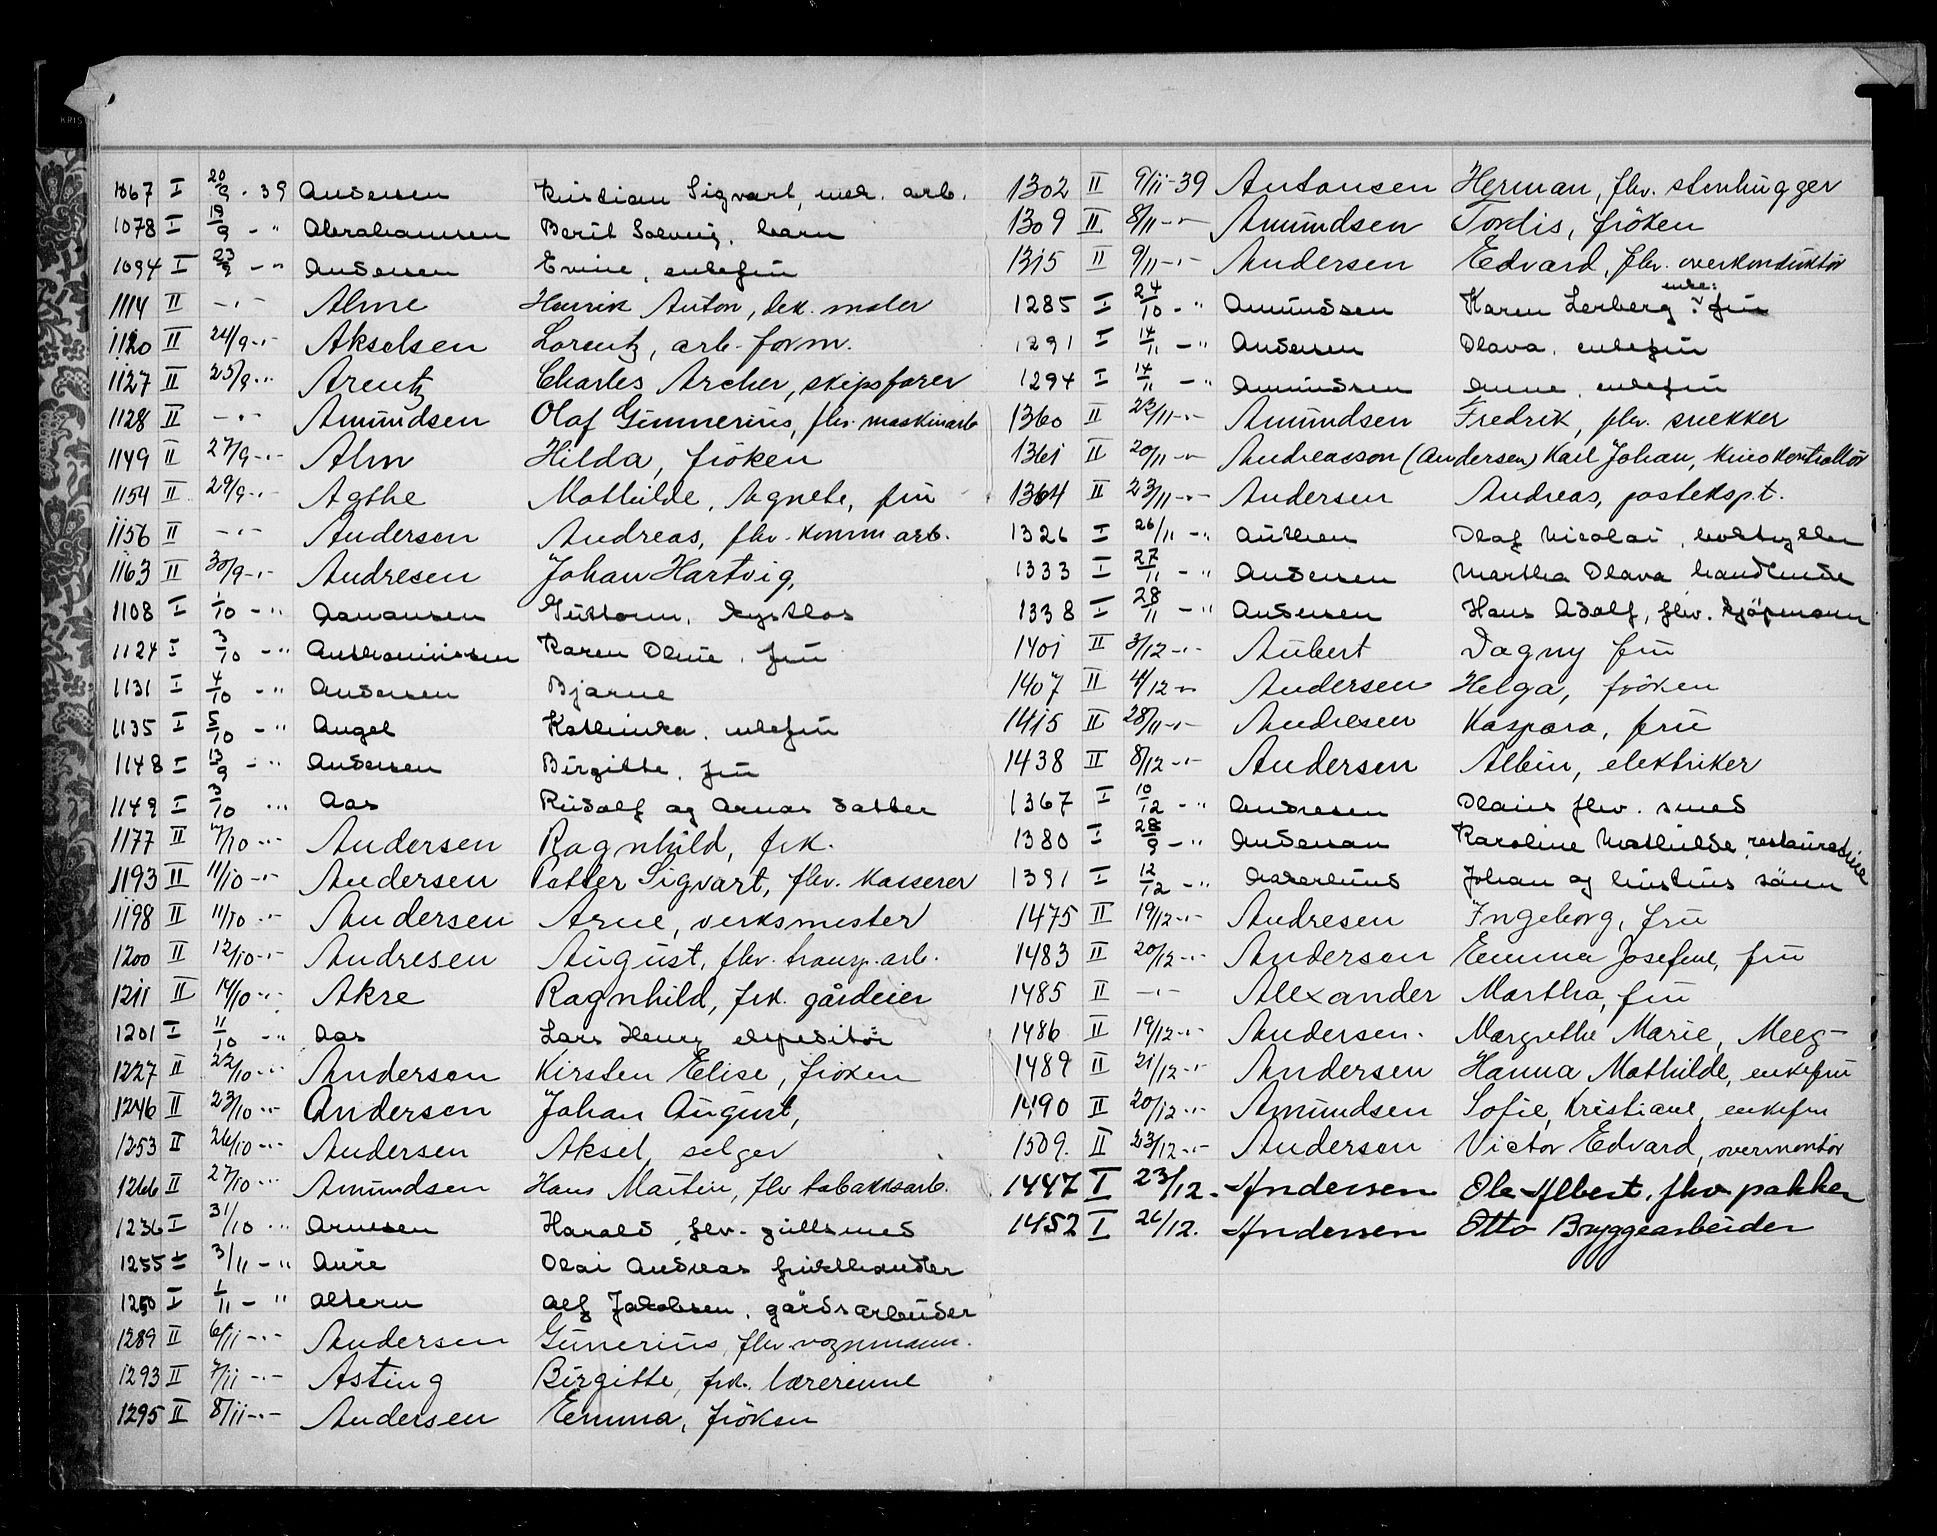 KRIS
1067 I 20/9 - 39 Andersen Kristian Sigvart, mek. arb.
1078 I 19/9 - " Abrahamsen Berit Solveig, barn
1094 I 23/9 - " Andersen Emine, enkefru
1114 II - " - Alme Henrik Anton, dek. maler
1120 II 24/9 - " - Akselsen Lorentz, arb. form.
1127 II 25/9 - " - Arentz Charles Archer, skipsfører
1128 II - " - Amundsen Olaf Gunnerius, fhv. maskinarb
1149 II 27/9 - " - Alm Hilda, frøken
1154 II 29/9 - " - Agthe Mathilde, Agnete, fru
1156 II - " - Andersen Andreas, fhv. komm arb.
1163 II 30/9 - " - Andresen Johan Hartvig,
1108 I 1/10 - " Aamansen Guttorm, lystlos
1124 I 3/10 - " Karen Oline, fru
1131 I 4/10 - " Andersen Bjarne
1135 I 5/10 - " Angel Kathinka, enkefru
1148 I 13/9 - " Andersen Birgitte, fru
1149 I 3/10 " Aas Rudolf og Arnas datter
1177 II 7/10 - " - Andersen Ragnhild, frk.
1193 II 11/10 - " - Andersen Petter Sigvart, fhv. kasserer
1198 II 11/10 - " - Andersen Arne, verksmester
1200 II 12/10 - " - Andresen August, fhv. transp. arb.
1211 II 14/10 - " - Akre Ragnhild, frk. gårdeier
1201 I 11/10 - " Aas Lars Henry ekspeditør
1227 II 22/10 - " - Andersen Kirsten Elise, frøken
1246 II 23/10 - " - Andersen Johan August,
1253 II 26/10 - " - Andersen Aksel, selger
1266 II 27/10 - " - Amundsen Hans Martin, fhv tobakksarb.
1236 I 31/10 " Arnesen Harald, fhv. gullsmed
1255 I 3/11 - " Aure Olai Andreas frukthandler
1250 I 1/11 - " Altern Alf Jakobsen, gårdsarbeider
1289 II 6/11 - " - Andersen Gunerius, fhv. vognmann.
1293 II 7/11 - " - Asting Birgitte, frk. lærerinne
1295 II 8/11 - " - Andersen Emma, frøken
1302 II 9/11 - 39 Antonsen Herman, fhv. stenhugger
1309 II 8/11 - " - Amundsen Tordis, frøken
1315 II 9/11 - " - Andersen Edvard, fhv. overkonduktør
1285 I 24/10 - " Amundsen Karen Lerberg, enke: fru
1291 I 14/11 - " Andersen Olava, enkefru
1294 I 14/11 - " Amundsen Anne, enkefru
1360 II 22/11 - " - Amundsen Fredrik, fhv. snekker
1361 II 20/11 - " - Andreasson (Andersen) Karl Johan, kinokontrollør
1364 II 23/11 - " - Andersen Andreas, posteksp.t.
1326 I 26/11 - " Authen Olaf Nicolai,
1333 I 27/11 - " Andersen Martha Olava handlende
1338 I 28/11 - " Andersen Hans Adolf, fhv. kjøpmann
1401 II 3/12 - " - Aubert Dagny fru
1407 II 4/12 - " Andersen Helga, frøken
1415 II 28/11 - " - Andresen Kaspara, fru
1438 II 8/12 - " - Andersen Albin, elektriker
1367 I 10/12 - " Andresen Olaius fhv. smed
1380 I 28/9 - " Andersen Karoline Mathilde, restauratrine
1391 I 12/12 - " Johan og sønn
1475 II 19/12 - " - Andresen Ingeborg, fru
1483 II 20/12 - " - Andersen Emma Josefine, fru
1485 II - " - Alexander Martha, fru
1486 II 19/12 - " - Andersen. Margrethe Marie, Meeg-
1489 II 21/12 - " - Andersen Hanna Mathilde, enkefru
1490 II 20/12 - " - Amundsen Sofie, Kristiane, enkefru
1509. II 23/12 - " - Andersen Victor Edvard, overmontør
1447 I 23/12. Andersen Ole Albert, fhv pakker
1452 I 26/12. Andersen Otto Bryggearbeider